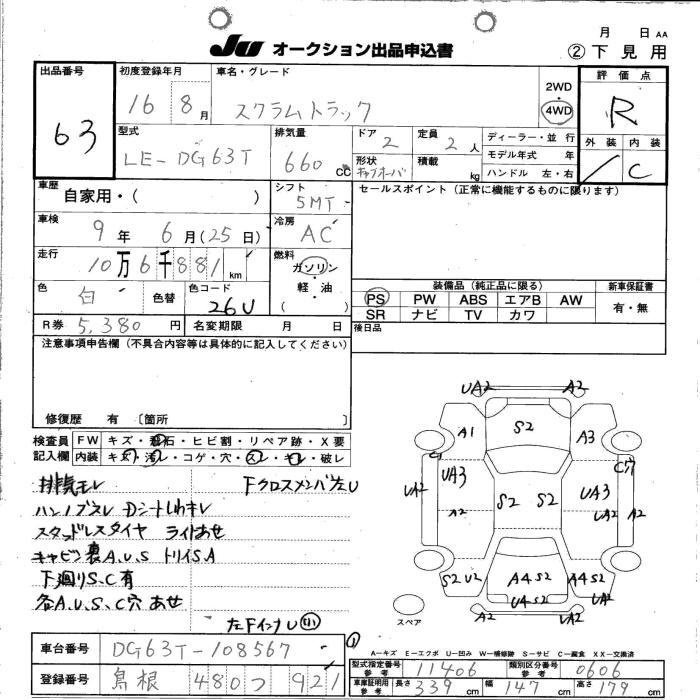 月 日 AA
JU オークション出品申込書
② 下見用
出品番号 63
初度登録年月 16 8月
車名・グレード スクラムトラック
2WD
4WD
評価点 R
外装 / 内装 C
型式 LE-DG63T
排気量 660 cc
ドア 2
定員 2人
形状 キャブオーバ
積載 kg
ディーラー・並行
モデル年式 年
ハンドル 左・右
車歴 自家用・( )
シフト 5MT
セールスポイント(正常に機能するものに限ります)
車検 9年 6月(25日)
冷房 AC
走行 10万6千881km
燃料 ガソリン・軽油 ( )
色 白
色替
色コード 26U
装備品(純正品に限る)
新車保証書
PS PW ABS エアB AW
有・無
SR ナビ TV カワ
R券 5,380円
名変期限 月 日
後日品
注意事項申告欄(不具合内容等は具体的に記入してください)
修復歴 有 〔箇所 〕
検査員記入欄
FW キズ・飛石・ヒビ割・リペア跡・X要
内装 キズ・汚レ・コゲ・穴・スレ・キレ・破レ
排気モレ
下クロスメンバ左U
ハンノブスレ Dシートしわキレ
スタッドレスタイヤ ライトあせ
キャビン裏A.U.S トリイS.A
下廻りS.C有
各A.U.S.C穴 あせ
左FインナU(小)
UA2 A2
A1 S2 A3
UA3 C穴
UA2 S2 S2 UA3
A2 UA2 A2
S2U2 A4S2 A4S2
U4S2
A2 UA2
スペア
①
A-キズ E-エクボ U-凹み W-補修跡 S-サビ C-腐食 XX-交換済
車台番号 DG63T-108567
型式指定番号 参考 11406
類別区分番号 参考 0606
登録番号 島根 480つ 921
車庫証明用 参考 長さ 339cm 幅 147cm 高さ 179cm